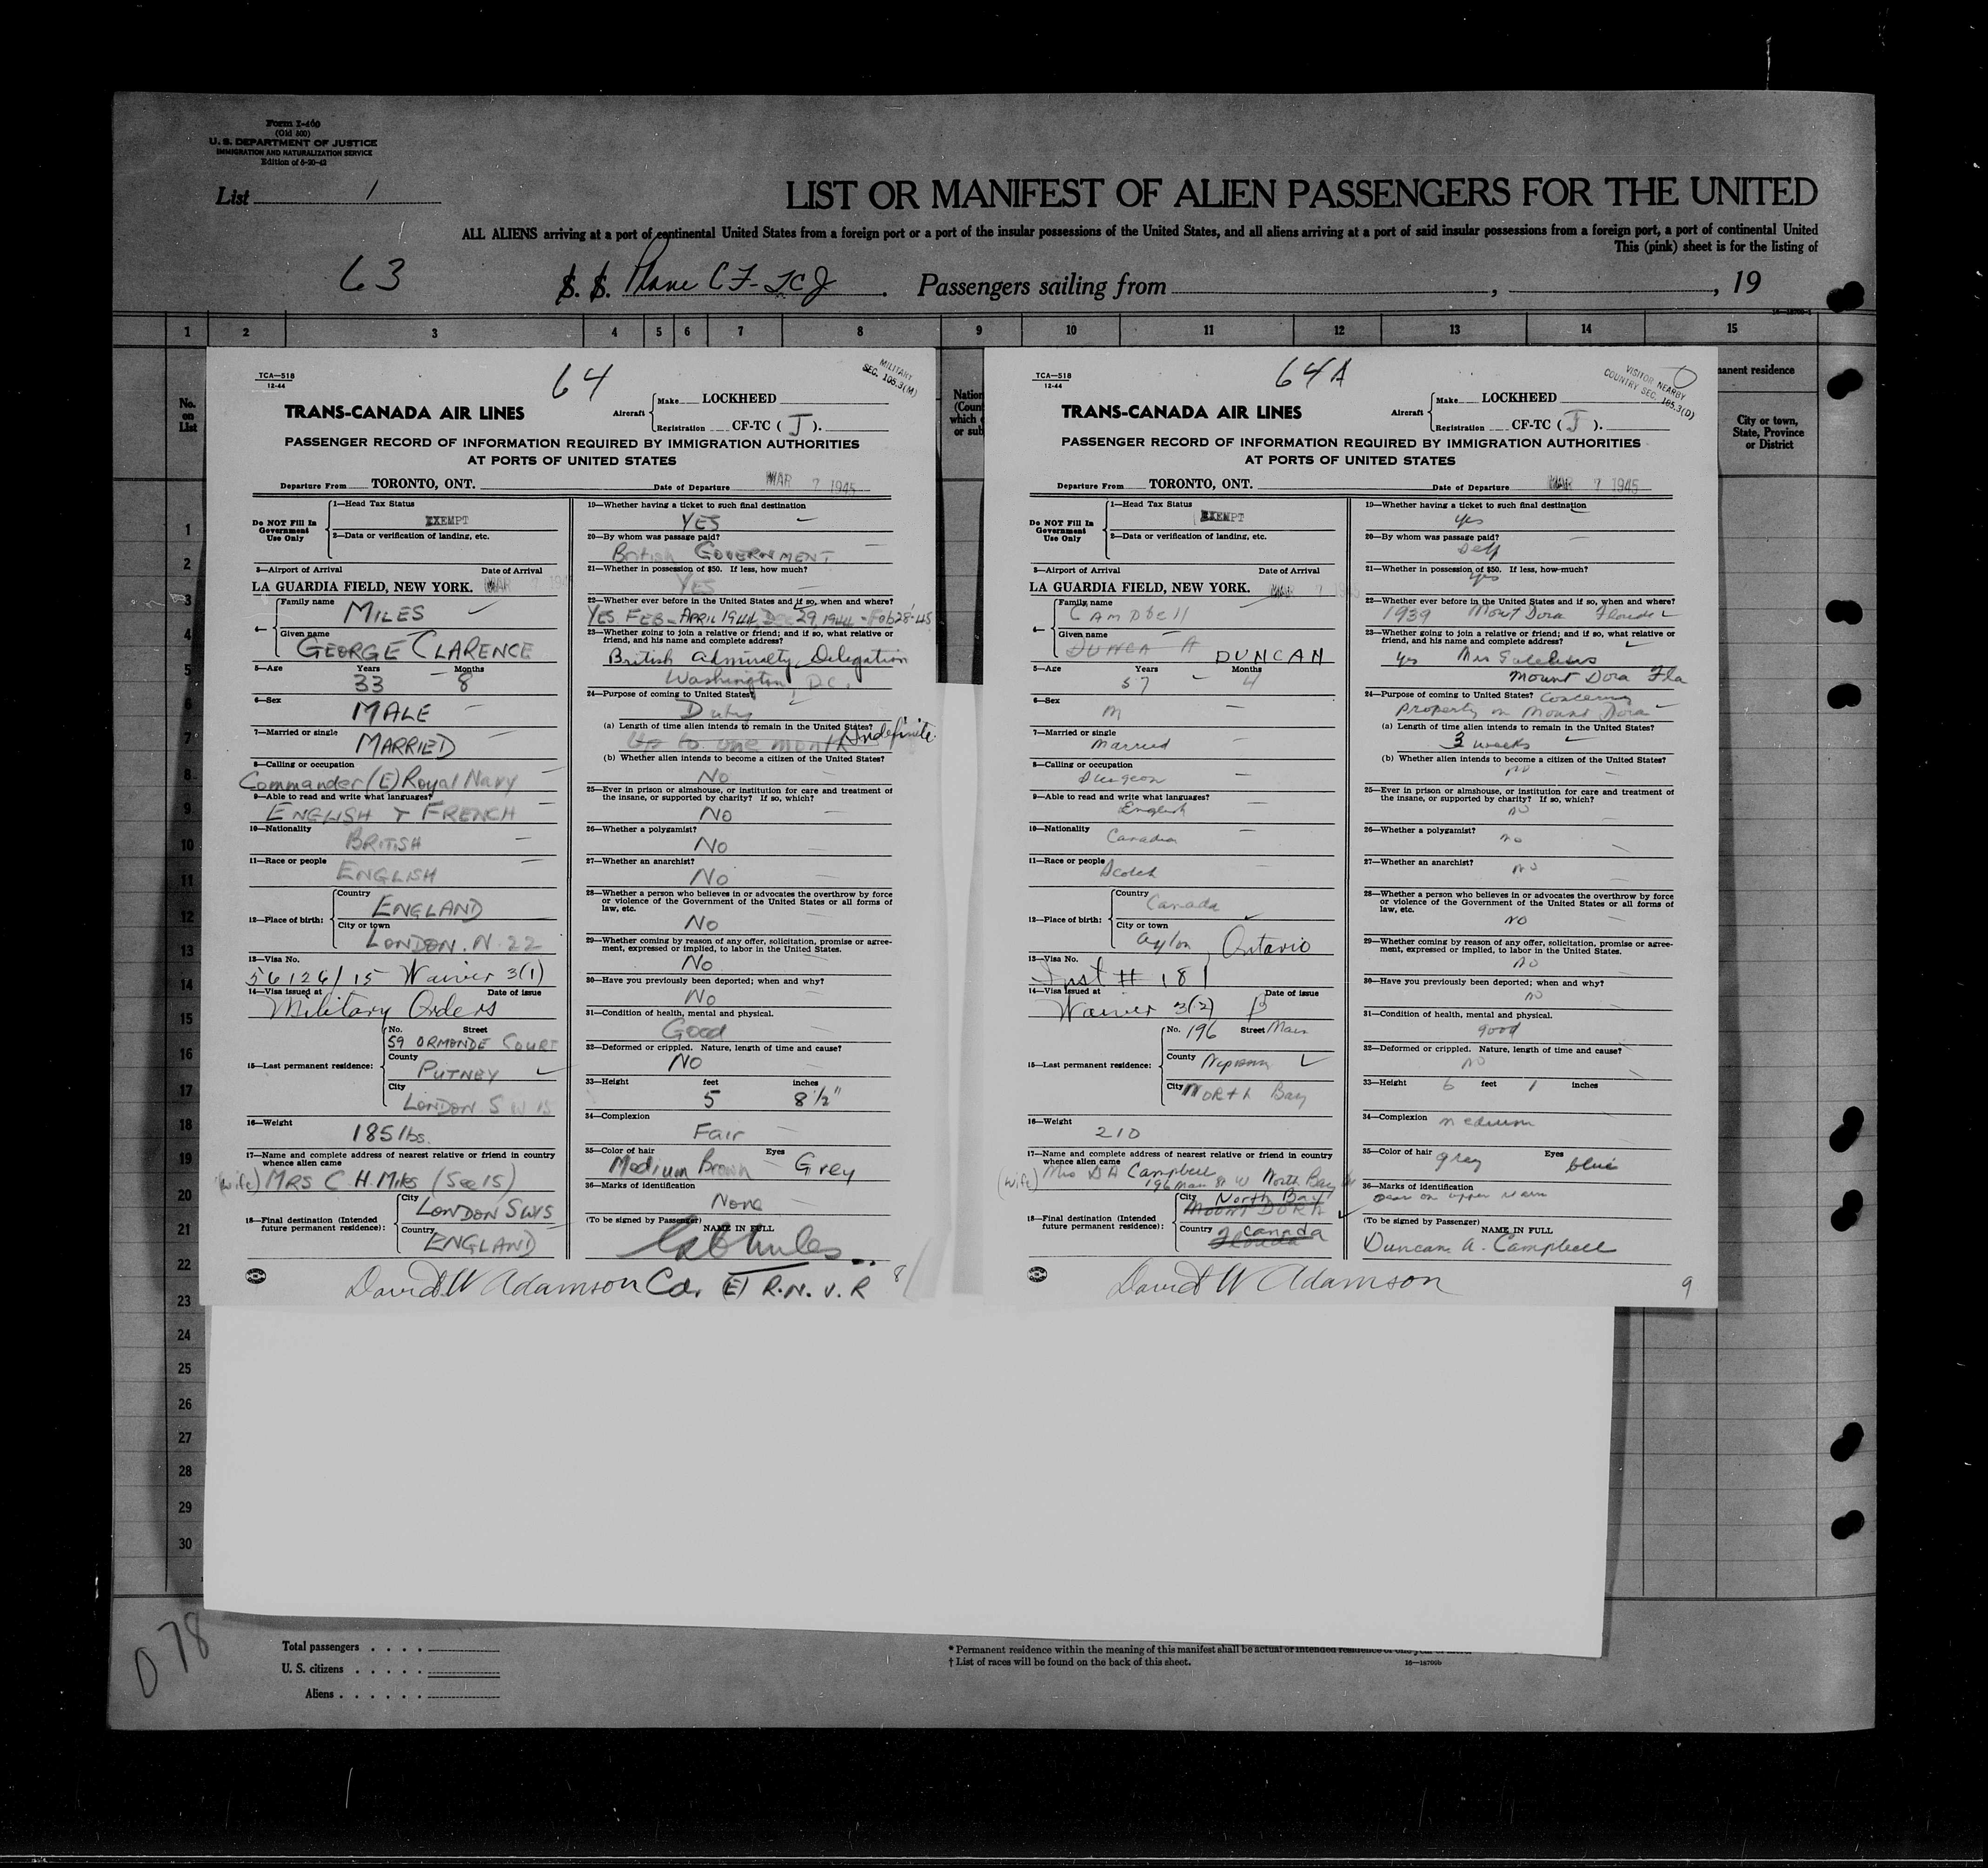 Form I-460
(Old 500)
U. S. DEPARTMENT OF JUSTICE
IMMIGRATION AND NATURALIZATION SERVICE
Edition of 6-20-42
List 1
LIST OR MANIFEST OF ALIEN PASSENGERS FOR THE UNITED
ALL ALIENS arriving at a port of continental United States from a foreign port or a port of the insular possessions of the United States, and all aliens arriving at a port of said insular possessions from a foreign port, a port of continental United
This (pink) sheet is for the listing of
63 S. S. Plane CF-TCJ. Passengers sailing from , , 19
1 2 3 4 5 6 7 8 9 10 11 12 13 14 15
No. on List
manent residence
City or town, State, Province or District
1
2
3
4
5
6
7
8
9
10
11
12
13
14
15
16
17
18
19
20
21
22
23
24
25
26
27
28
29
30
TCA—518
12-44
64
MILITARY
SEC. 105.3(M)
TRANS-CANADA AIR LINES
Aircraft Make LOCKHEED
Registration CF-TC ( J ).
PASSENGER RECORD OF INFORMATION REQUIRED BY IMMIGRATION AUTHORITIES
AT PORTS OF UNITED STATES
Departure From TORONTO, ONT. Date of Departure MAR 7 1945
Do NOT Fill In Government Use Only
1—Head Tax Status
EXEMPT
2—Data or verification of landing, etc.
3—Airport of Arrival Date of Arrival
LA GUARDIA FIELD, NEW YORK. MAR 7 194
4—
Family name
MILES
Given name
GEORGE CLARENCE
5—Age Years Months
33 8
6—Sex
MALE
7—Married or single
MARRIED
8—Calling or occupation
Commander (E) Royal Navy
9—Able to read and write what languages?
ENGLISH & FRENCH
10—Nationality
BRITISH
11—Race or people
ENGLISH
12—Place of birth:
Country
ENGLAND
City or town
LONDON. N. 22
13—Visa No.
56126/15 Waiver 3(1)
14—Visa issued at Date of issue
Military Orders
15—Last permanent residence:
No. Street
59 ORMONDE COURT
County
PUTNEY
City
LONDON S W 15
16—Weight
185 lbs.
17—Name and complete address of nearest relative or friend in country whence alien came
(wife) MRS C. H. Miles (See 15)
18—Final destination (Intended future permanent residence):
City
LONDON SW15
Country
ENGLAND
19—Whether having a ticket to such final destination
YES
20—By whom was passage paid?
British GOVERNMENT
21—Whether in possession of $50. If less, how much?
YES
22—Whether ever before in the United States and if so, when and where?
YES FEB - APRIL 1944, Dec 29, 1944 - Feb 28-45
23—Whether going to join a relative or friend; and if so, what relative or friend, and his name and complete address?
British Admiralty Delegation
Washington, D.C.
24—Purpose of coming to United States?
Duty
(a) Length of time alien intends to remain in the United States?
Up to one month Indefinite
(b) Whether alien intends to become a citizen of the United States?
No
25—Ever in prison or almshouse, or institution for care and treatment of the insane, or supported by charity? If so, which?
No
26—Whether a polygamist?
No
27—Whether an anarchist?
No
28—Whether a person who believes in or advocates the overthrow by force or violence of the Government of the United States or all forms of law, etc.
No
29—Whether coming by reason of any offer, solicitation, promise or agreement, expressed or implied, to labor in the United States.
No
30—Have you previously been deported; when and why?
No
31—Condition of health, mental and physical.
Good
32—Deformed or crippled. Nature, length of time and cause?
No
33—Height feet inches
5 8 1/2"
34—Complexion
Fair
35—Color of hair Eyes
Medium Brown Grey
36—Marks of identification
None
(To be signed by Passenger) NAME IN FULL
David W Adamson Cdr. (E) R.N.V.R 8
TCA—518
12-44
64A
VISITOR NEARBY
COUNTRY SEC. 105.3(D)
TRANS-CANADA AIR LINES
Aircraft Make LOCKHEED
Registration CF-TC ( J ).
PASSENGER RECORD OF INFORMATION REQUIRED BY IMMIGRATION AUTHORITIES
AT PORTS OF UNITED STATES
Departure From TORONTO, ONT. Date of Departure MAR 7 1945
Do NOT Fill In Government Use Only
1—Head Tax Status
EXEMPT
2—Data or verification of landing, etc.
3—Airport of Arrival Date of Arrival
LA GUARDIA FIELD, NEW YORK. MAR 7 19
4—
Family name
CAMPBell
Given name
DUNCA A DUNCAN
5—Age Years Months
57 4
6—Sex
M
7—Married or single
Married
8—Calling or occupation
Surgeon
9—Able to read and write what languages?
English
10—Nationality
Canadian
11—Race or people
Scotch
12—Place of birth:
Country
Canada
City or town
Ontario
13—Visa No.
Inst # 181
14—Visa issued at Date of issue
Waiver 3(2)
15—Last permanent residence:
No. 196 Street Main
County
City NORTH Bay
16—Weight
210
17—Name and complete address of nearest relative or friend in country whence alien came
(wife) Mrs D A Campbell
196 Main St W North Bay
18—Final destination (Intended future permanent residence):
City North Bay
Mount DORA
Country Canada
Florida
19—Whether having a ticket to such final destination
yes
20—By whom was passage paid?
Self
21—Whether in possession of $50. If less, how much?
yes
22—Whether ever before in the United States and if so, when and where?
1939 Mount Dora Florida
23—Whether going to join a relative or friend; and if so, what relative or friend, and his name and complete address?
yes Mrs
Mount Dora Fla
24—Purpose of coming to United States? Concerning
property in Mount Dora
(a) Length of time alien intends to remain in the United States?
3 weeks
(b) Whether alien intends to become a citizen of the United States?
no
25—Ever in prison or almshouse, or institution for care and treatment of the insane, or supported by charity? If so, which?
no
26—Whether a polygamist?
no
27—Whether an anarchist?
no
28—Whether a person who believes in or advocates the overthrow by force or violence of the Government of the United States or all forms of law, etc.
NO
29—Whether coming by reason of any offer, solicitation, promise or agreement, expressed or implied, to labor in the United States.
no
30—Have you previously been deported; when and why?
no
31—Condition of health, mental and physical.
good
32—Deformed or crippled. Nature, length of time and cause?
no
33—Height 6 feet 1 inches
34—Complexion medium
35—Color of hair gray Eyes blue
36—Marks of identification
(To be signed by Passenger) NAME IN FULL
Duncan A. Campbell
David W Adamson 9
078
Total passengers
U. S. citizens
Aliens
* Permanent residence within the meaning of this manifest shall be actual or intended residence of one year
† List of races will be found on the back of this sheet.